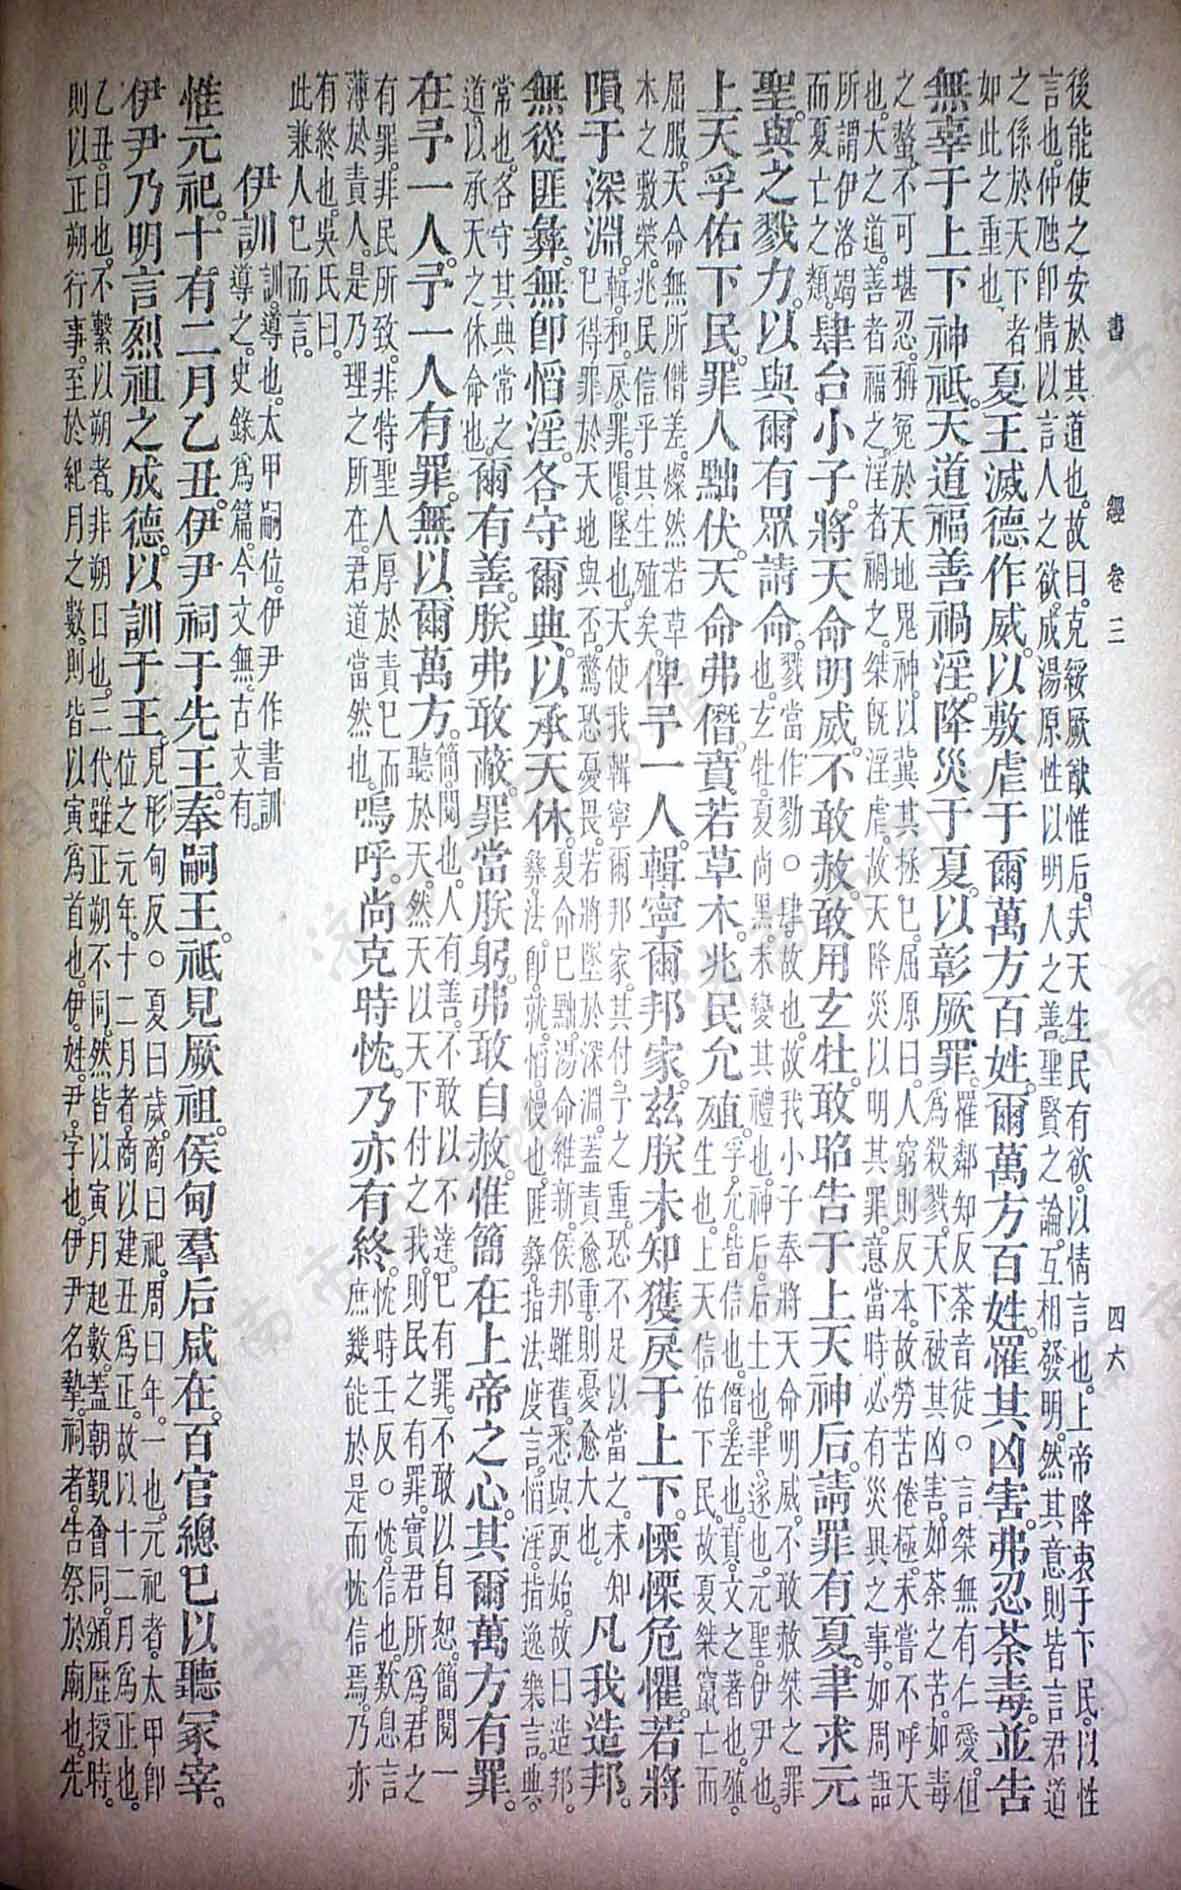 書經 卷三 四六
後能使之安於其道也。故曰。克綏厥猷惟后。夫天生民有欲。以情言也。上帝降衷于下民。以性
言也。仲虺卽情以言人之欲。成湯原性以明人之善。聖賢之論。互相發明。然其意則皆言君道
之係於天下者
如此之重也。
夏王滅德作威。以敷虐于爾萬方百姓。爾萬方百姓。罹其凶害。弗忍荼毒。並告
無辜于上下神祇。天道福善禍淫。降災于夏。以彰厥罪。
罹鄰知反荼音徒。○言桀無有仁愛。但
爲殺戮。天下被其凶害。如荼之苦。如毒
之螫。不可堪忍。稱冤於天地鬼神。以冀其拯己。屈原曰。人窮則反本。故勞苦倦極。未嘗不呼天
也。大之道。善者福之。淫者禍之。桀旣淫虐。故天降災以明其罪。意當時必有災異之事。如周語
所謂伊洛竭
而夏亡之類。
肆台小子。將天命明威。不敢赦。敢用玄牡。敢昭告于上天神后。請罪有夏。聿求元
聖。與之戮力。以與爾有眾請命。
戮當作勠○肆故也。故我小子奉將天命明威。不敢赦桀之罪
也。玄牡。夏尚黑。未變其禮也。神后。后土也。聿。遂也。元聖。伊尹也。
上天孚佑下民。罪人黜伏。天命弗僭。賁若草木。兆民允殖。
孚。允。皆信也。僭。差也。賁。文之著也。殖。
生也。上天信佑下民。故夏桀竄亡而
屈服。天命無所僭差。燦然若草
木之敷榮。兆民信乎其生殖矣。
俾予一人。輯寧爾邦家。茲朕未知獲戾于上下。慄慄危懼。若將
隕于深淵。
輯。和。戾。罪。隕。墜也。天使我輯寧爾邦家。其付予之重。恐不足以當之。未知
己得罪於天地與否。驚恐憂畏。若將墜於深淵。蓋責愈重。則憂愈大也。
凡我造邦。
無從匪彝。無卽慆淫。各守爾典。以承天休。
夏命已黜。湯命維新。侯邦雖舊。悉與更始。故曰造邦。
彝。法。卽。就。慆。慢也。匪彝。指法度言。慆淫。指逸樂言。典
常也。各守其典常之
道。以承天之休命也。
爾有善。朕弗敢蔽。罪當朕躬。弗敢自赦。惟簡在上帝之心。其爾萬方有罪。
在予一人。予一人有罪。無以爾萬方。
簡。閱也。人有善。不敢以不達。己有罪。不敢以自恕。簡閱一
聽於天。然天以天下付之我。則民之有罪。實君所爲。君之
有罪。非民所致。非特聖人厚於責己而
薄於責人。是乃理之所在。君道當然也。
嗚呼。尚克時忱。乃亦有終。
忱時壬反。○忱。信也。歎息言
庶幾能於是而忱信焉。乃亦
有終也。吳氏曰。
此兼人己而言。
伊訓
訓。導也。太甲嗣位。伊尹作書訓
導之。史錄爲篇。今文無。古文有。
惟元祀。十有二月乙丑。伊尹祠于先王。奉嗣王。祇見厥祖。侯甸羣后咸在。百官總己以聽冢宰。
伊尹乃明言烈祖之成德。以訓于王。
見形甸反。○夏曰歲。商曰祀。周曰年。一也。元祀者。太甲卽
位之元年。十二月者。商以建丑爲正。故以十二月爲正也。
乙丑。日也。不繫以朔者。非朔日也。三代雖正朔不同。然皆以寅月起數。蓋朝覲會同。頒歷授時。
則以正朔行事。至於紀月之數。則皆以寅爲首也。伊。姓。尹。字也。伊尹名摯。祠者。告祭於廟也。先